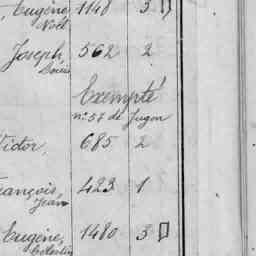 Eugène, 1148 3
Noël
Joseph, 562 2
Louis
Exempté
n° 57 de Jugon
Victor, 685 2
François, 423 1
Jean
Eugène, 1480 3
Célestin